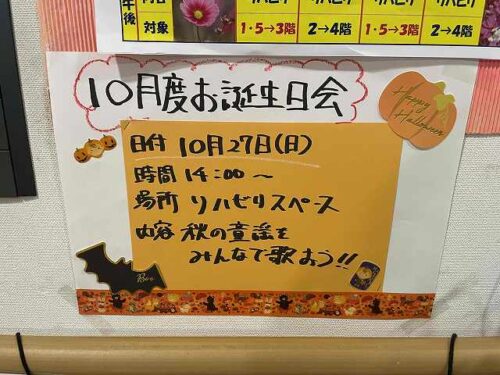 午後
対象
1・5→3階
2→4階
1・5→3階
2→4階
10月度お誕生日会
Happy
Halloween
日付 10月27日(日)
時間 14:00～
場所 リハビリスペース
内容 秋の童謡を
みんなで歌おう!!